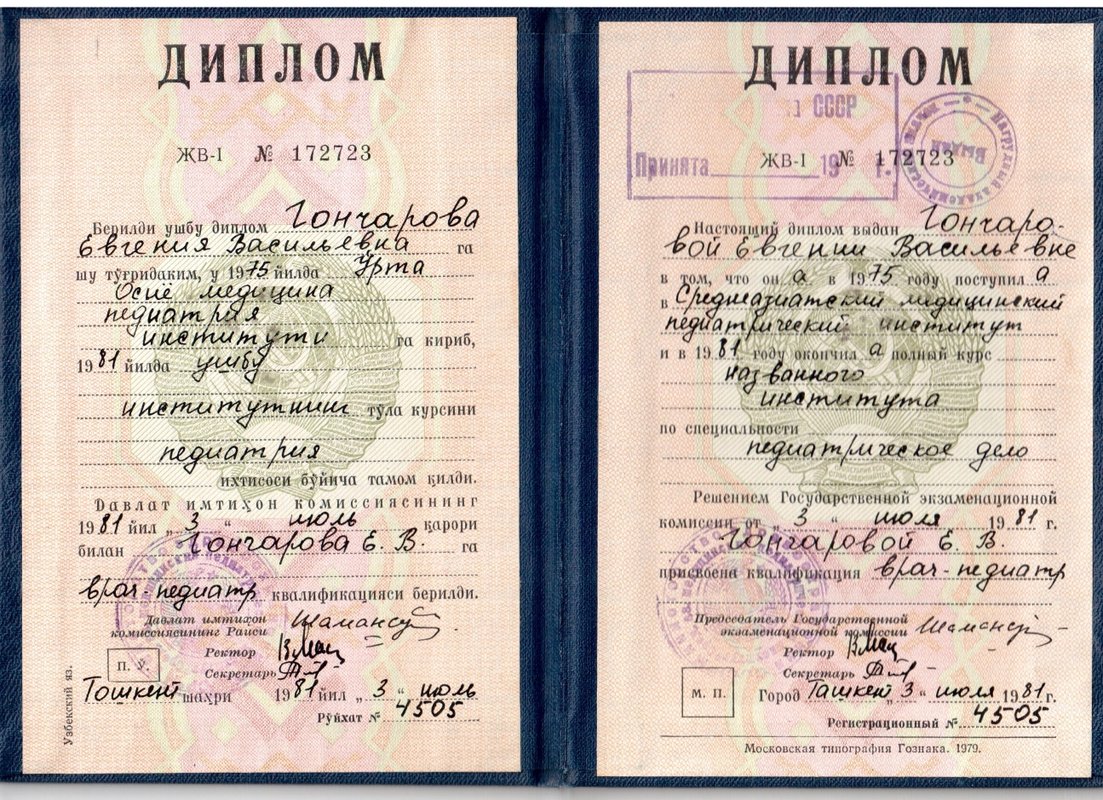 ДИПЛОМ
ЖВ-I № 172723
Берилди ушбу диплом Гончарова
Евгения Васильевна га
шу тўғридаким, у 1975 йилда Урта
Осиё медицина
педиатрия
институти га кириб,
1981 йилда ушбу
институтнинг тўла курсини
педиатрия
ихтисоси бўйича тамом қилди.
Давлат имтиҳон комиссиясининг
1981 йил „ 3 “ июль қарори
билан Гончарова Е. В. га
врач-педиатр квалификацияси берилди.
Давлат имтиҳон
комиссиясининг Раиси
Ректор
П. Ў.
Секретарь
Тошкент шаҳри 1981 йил „ 3 “ июль
Рўйхат № 4505
Узбекский яз.
ДИПЛОМ
СССР
Принята 19 г.
Выдан
ЖВ-I № 172723
Настоящий диплом выдан Гончаро-
вой Евгении Васильевне
в том, что он а в 1975 году поступил а
в Среднеазиатский медицинский
педиатрический институт
и в 1981 году окончил а полный курс
названного
института
по специальности
педиатрическое дело
Решением Государственной экзаменационной
комиссии от „ 3 “ июля 1981 г.
Гончаровой Е. В.
присвоена квалификация врач-педиатр
Председатель Государственной
экзаменационной комиссии
Ректор
Секретарь
М. П.
Город Ташкент 3 “ июля 1981 г.
Регистрационный № 4505
Московская типография Гознака. 1979.